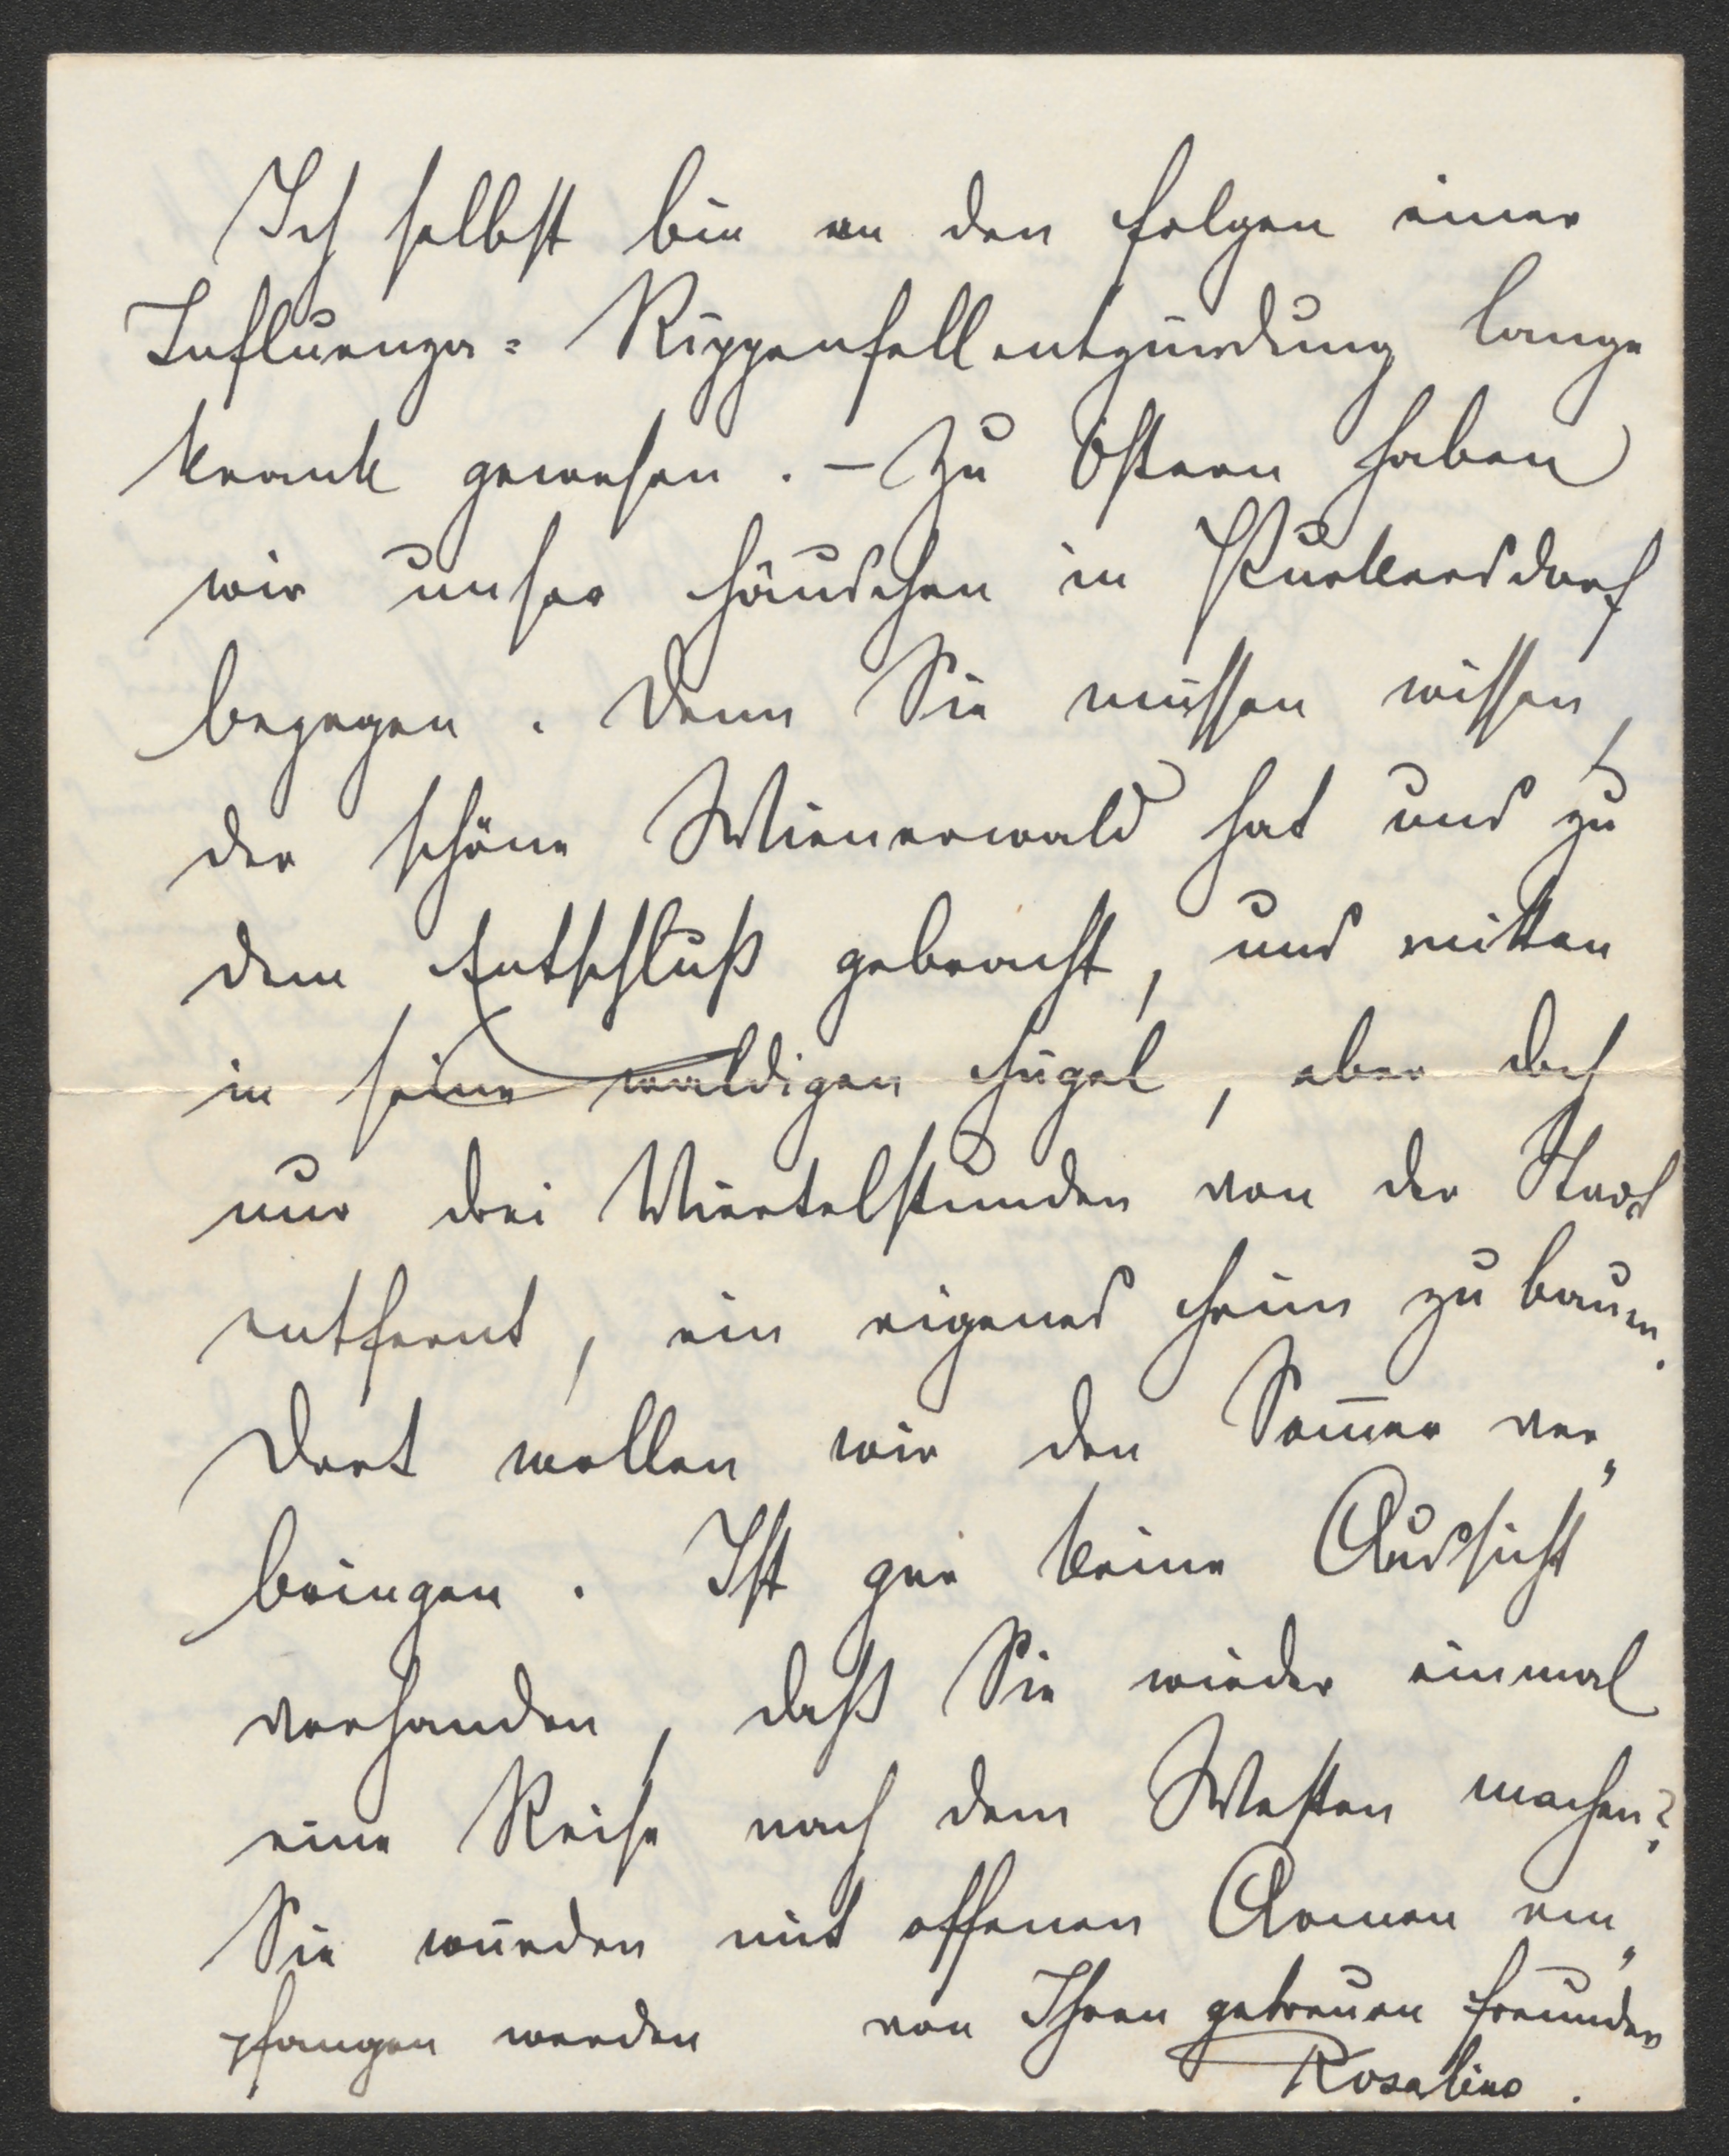 Ich selbst bin an den Folgen einer
Influenza = Rippenfellentzündung lange
krank gewesen . – Zu Ostern haben
wir unser Häuschen in Purkersdorf
bezogen . Denn Sie müssen wissen,
der schöne Wienerwald hat uns zu
dem Entschluß gebracht, uns mitten
in seine waldigen Hügel, aber doch
nur drei Viertelstunden von der Stadt
entfernt, ein eigenes Heim zu bauen.
Dort wollen wir den Som̅er ver„
bringen . Ist gar keine Aussicht
vorhanden, daß Sie wieder einmal
eine Reise nach dem Westen machen?
Sie würden mit offenen Armen em„
pfangen werden von Ihren getreuen Freunden